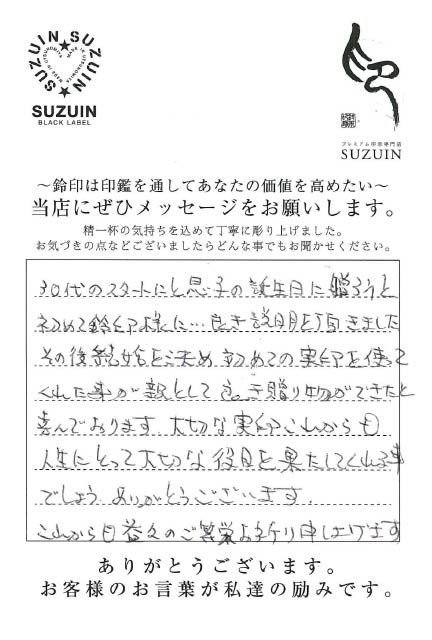 SUZUIN★SUZUIN★SUZUIN★
SUZUIN
BLACK LABEL
プレミアム印章専門店
SUZUIN
～鈴印は印鑑を通してあなたの価値を高めたい～
当店にぜひメッセージをお願いします。
精一杯の気持ちを込めて丁寧に彫り上げました。
お気づきの点などございましたらどんな事でもお聞かせください。
30代のスタートにと息子の誕生日に贈ろうと
初めて鈴印様に…良き説明を頂きました
その後結婚を決め初めての実印を使って
くれた事が親として良き贈り物ができたと
喜んでおります 大切な実印これからも
人生にとって大切な役目を果たしてくれる事
でしょう ありがとうございます。
これからも益々のご繁栄お祈り申し上げます
ありがとうございます。
お客様のお言葉が私達の励みです。